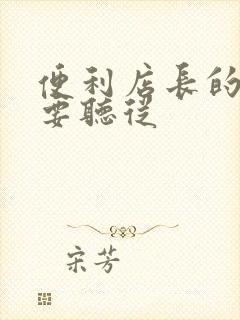 便利店長的
要聽從
宋芳